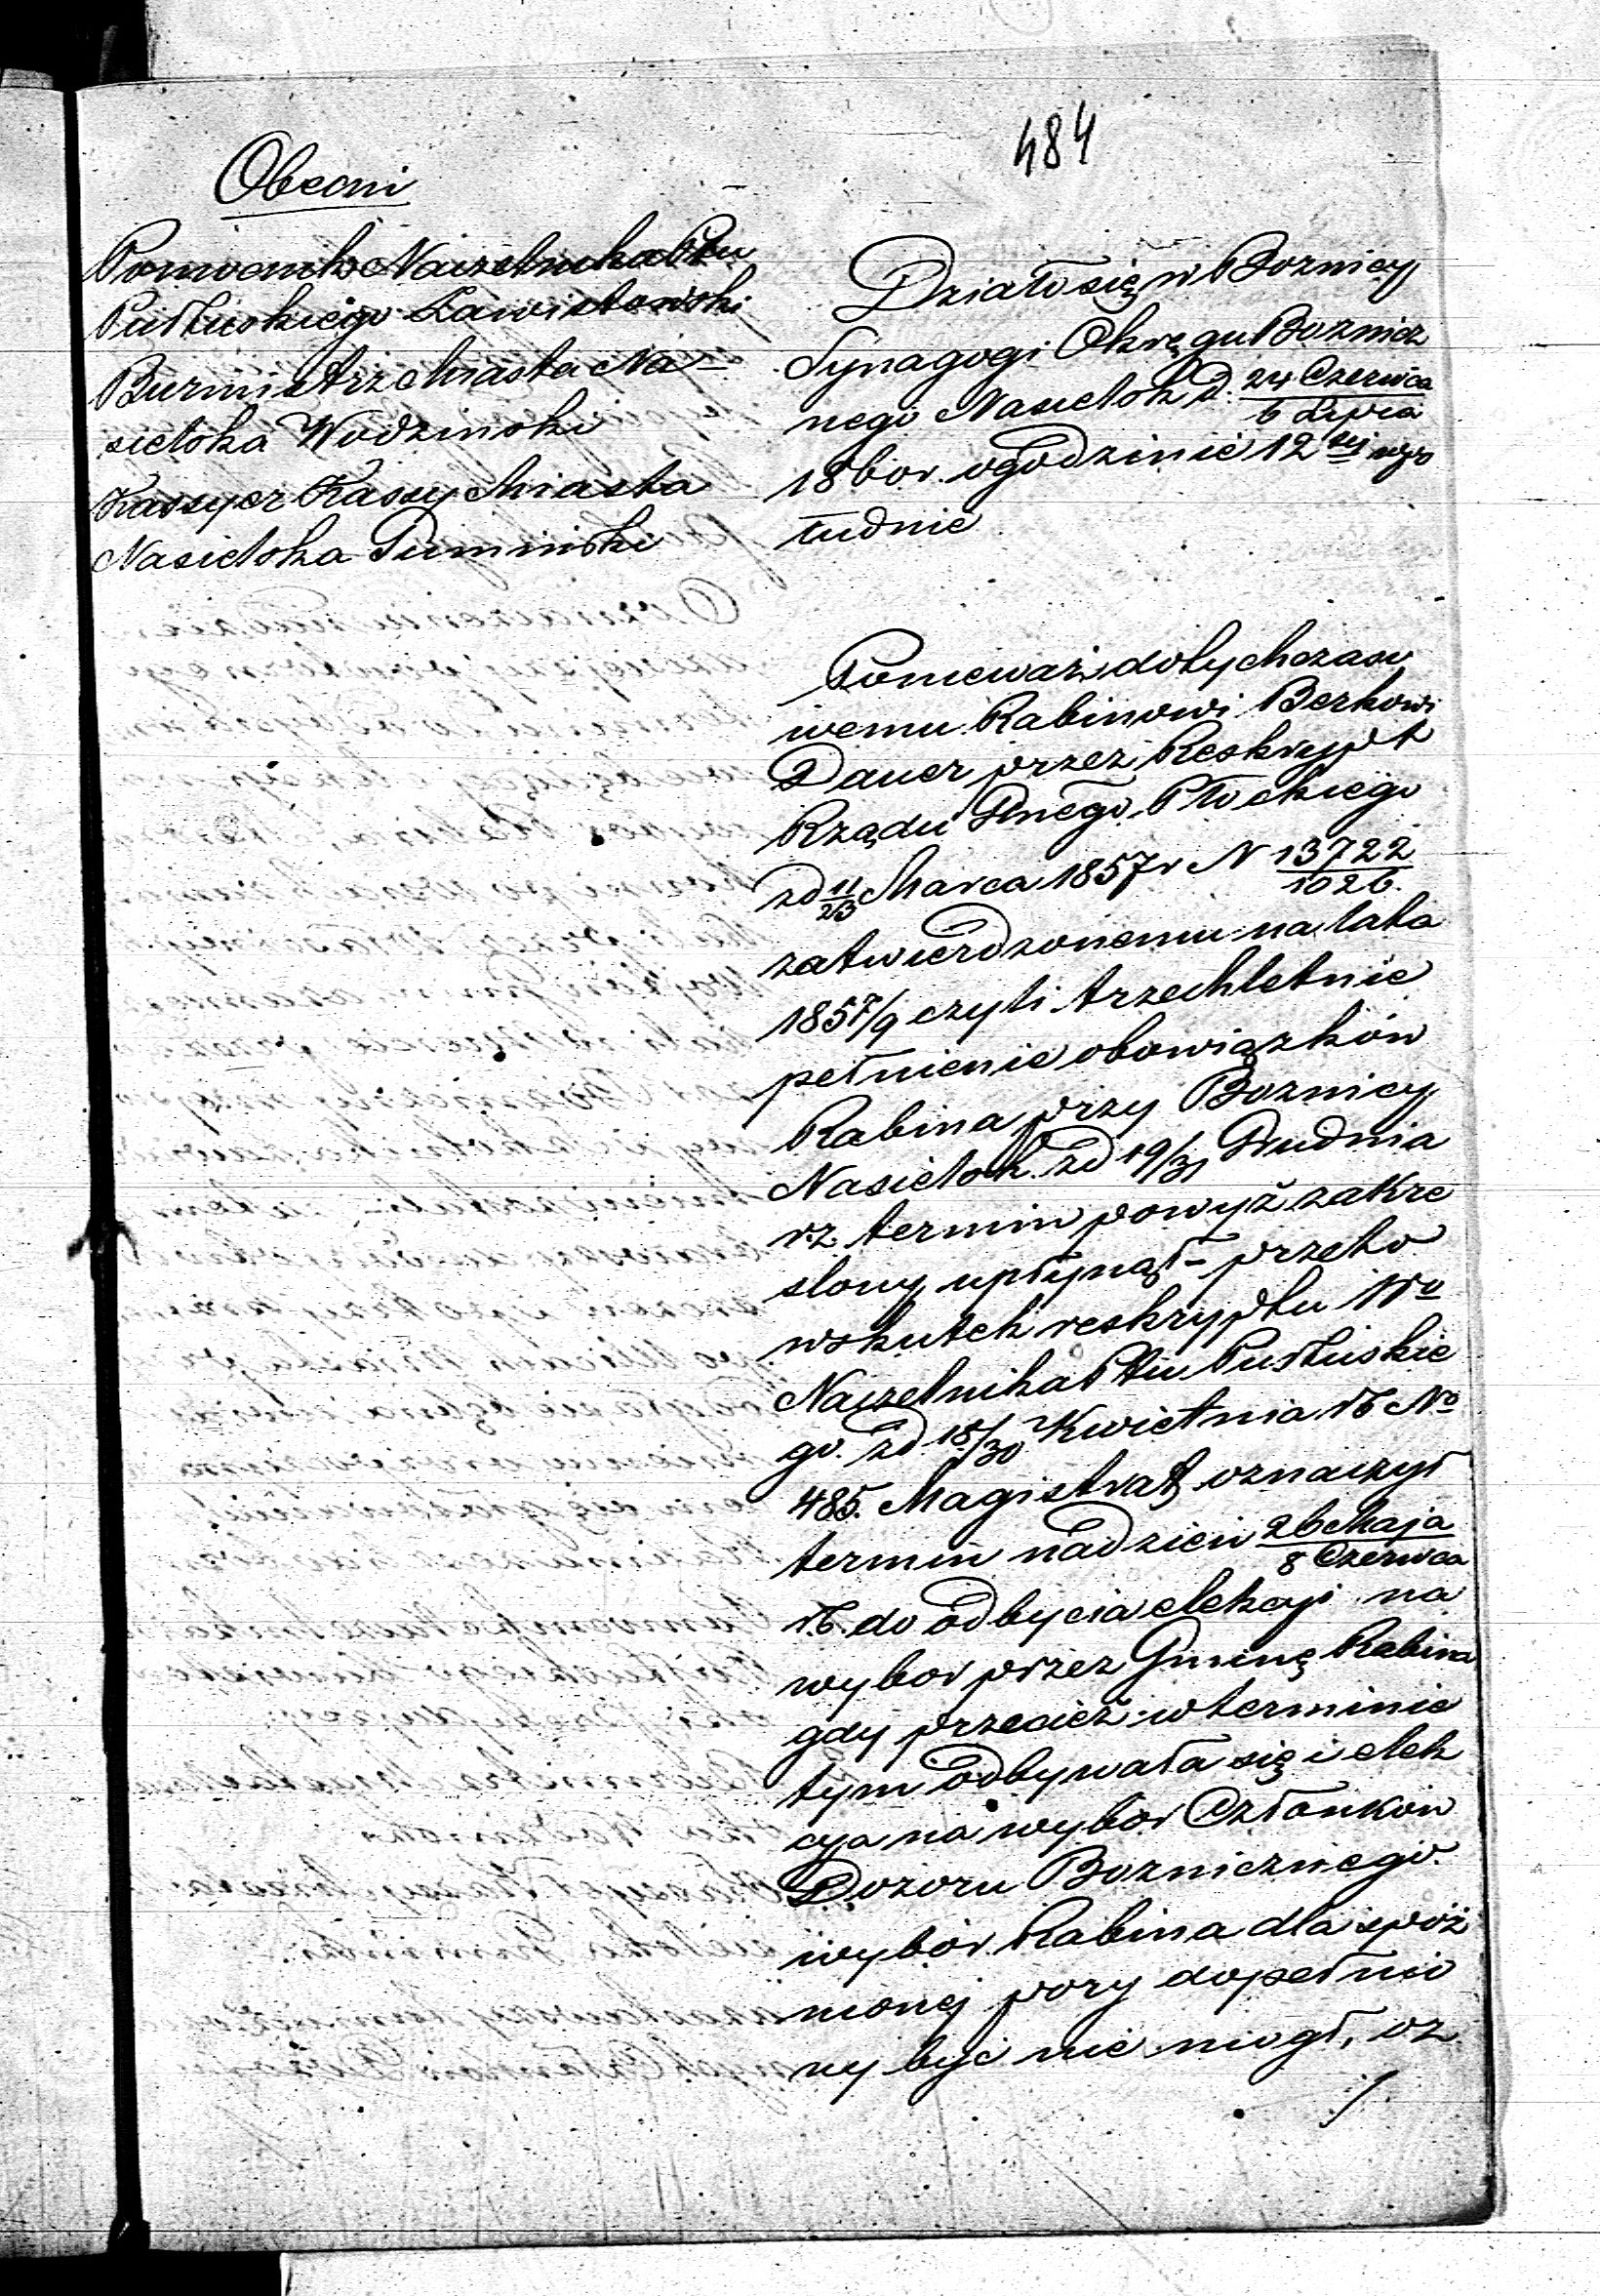 484
Obecni
Pomocnik Naczelnika Ptu
Pułtuskiego Zawistowski
Burmistrz Miasta Na-
sielska Wodzinski
Kassyer Kassy Miasta
Nasielska Tuminski
Działo się w Boznicy
Synagogi Okręgu Boznicz
nego Nasielsk d. 24 Czerwca
6 Lipca
1860r. o godzinie 12stej wpo
łudnie
Ponieważ dotychczaso
wemu Rabinowi Berkowi
Dauer przez Reskrypt
Rządu Gnego Płockiego
zd 11/23 Marca 1857r N 13722
1026.
zatwierdzonemu na lata
1857/9 czyli trzechletnie
pełnienie obowiązków
Rabina przy Boznicy
Nasielsk. zd 19/31 Grudnia
r.z. termin powyż zakre
slony upłynął - przeto
wskutek reskryptu Wo
Naczelnika Ptu Pułtuskie
go. zd 18/30 Kwietnia rb No
485. Magistrat oznaczył
termin na dzien 26 Maja
8 Czerwca
rb. do odbycia elekcyi na
wybor przez Gminę Rabina
gdy przecież w terminie
tym odbywała się i elek
cya na wybor Członkow
Dozoru Bozniczego.
wybor Rabina dla spóź
nionej pory dopełnio
ny być nie mogł, oz
./.